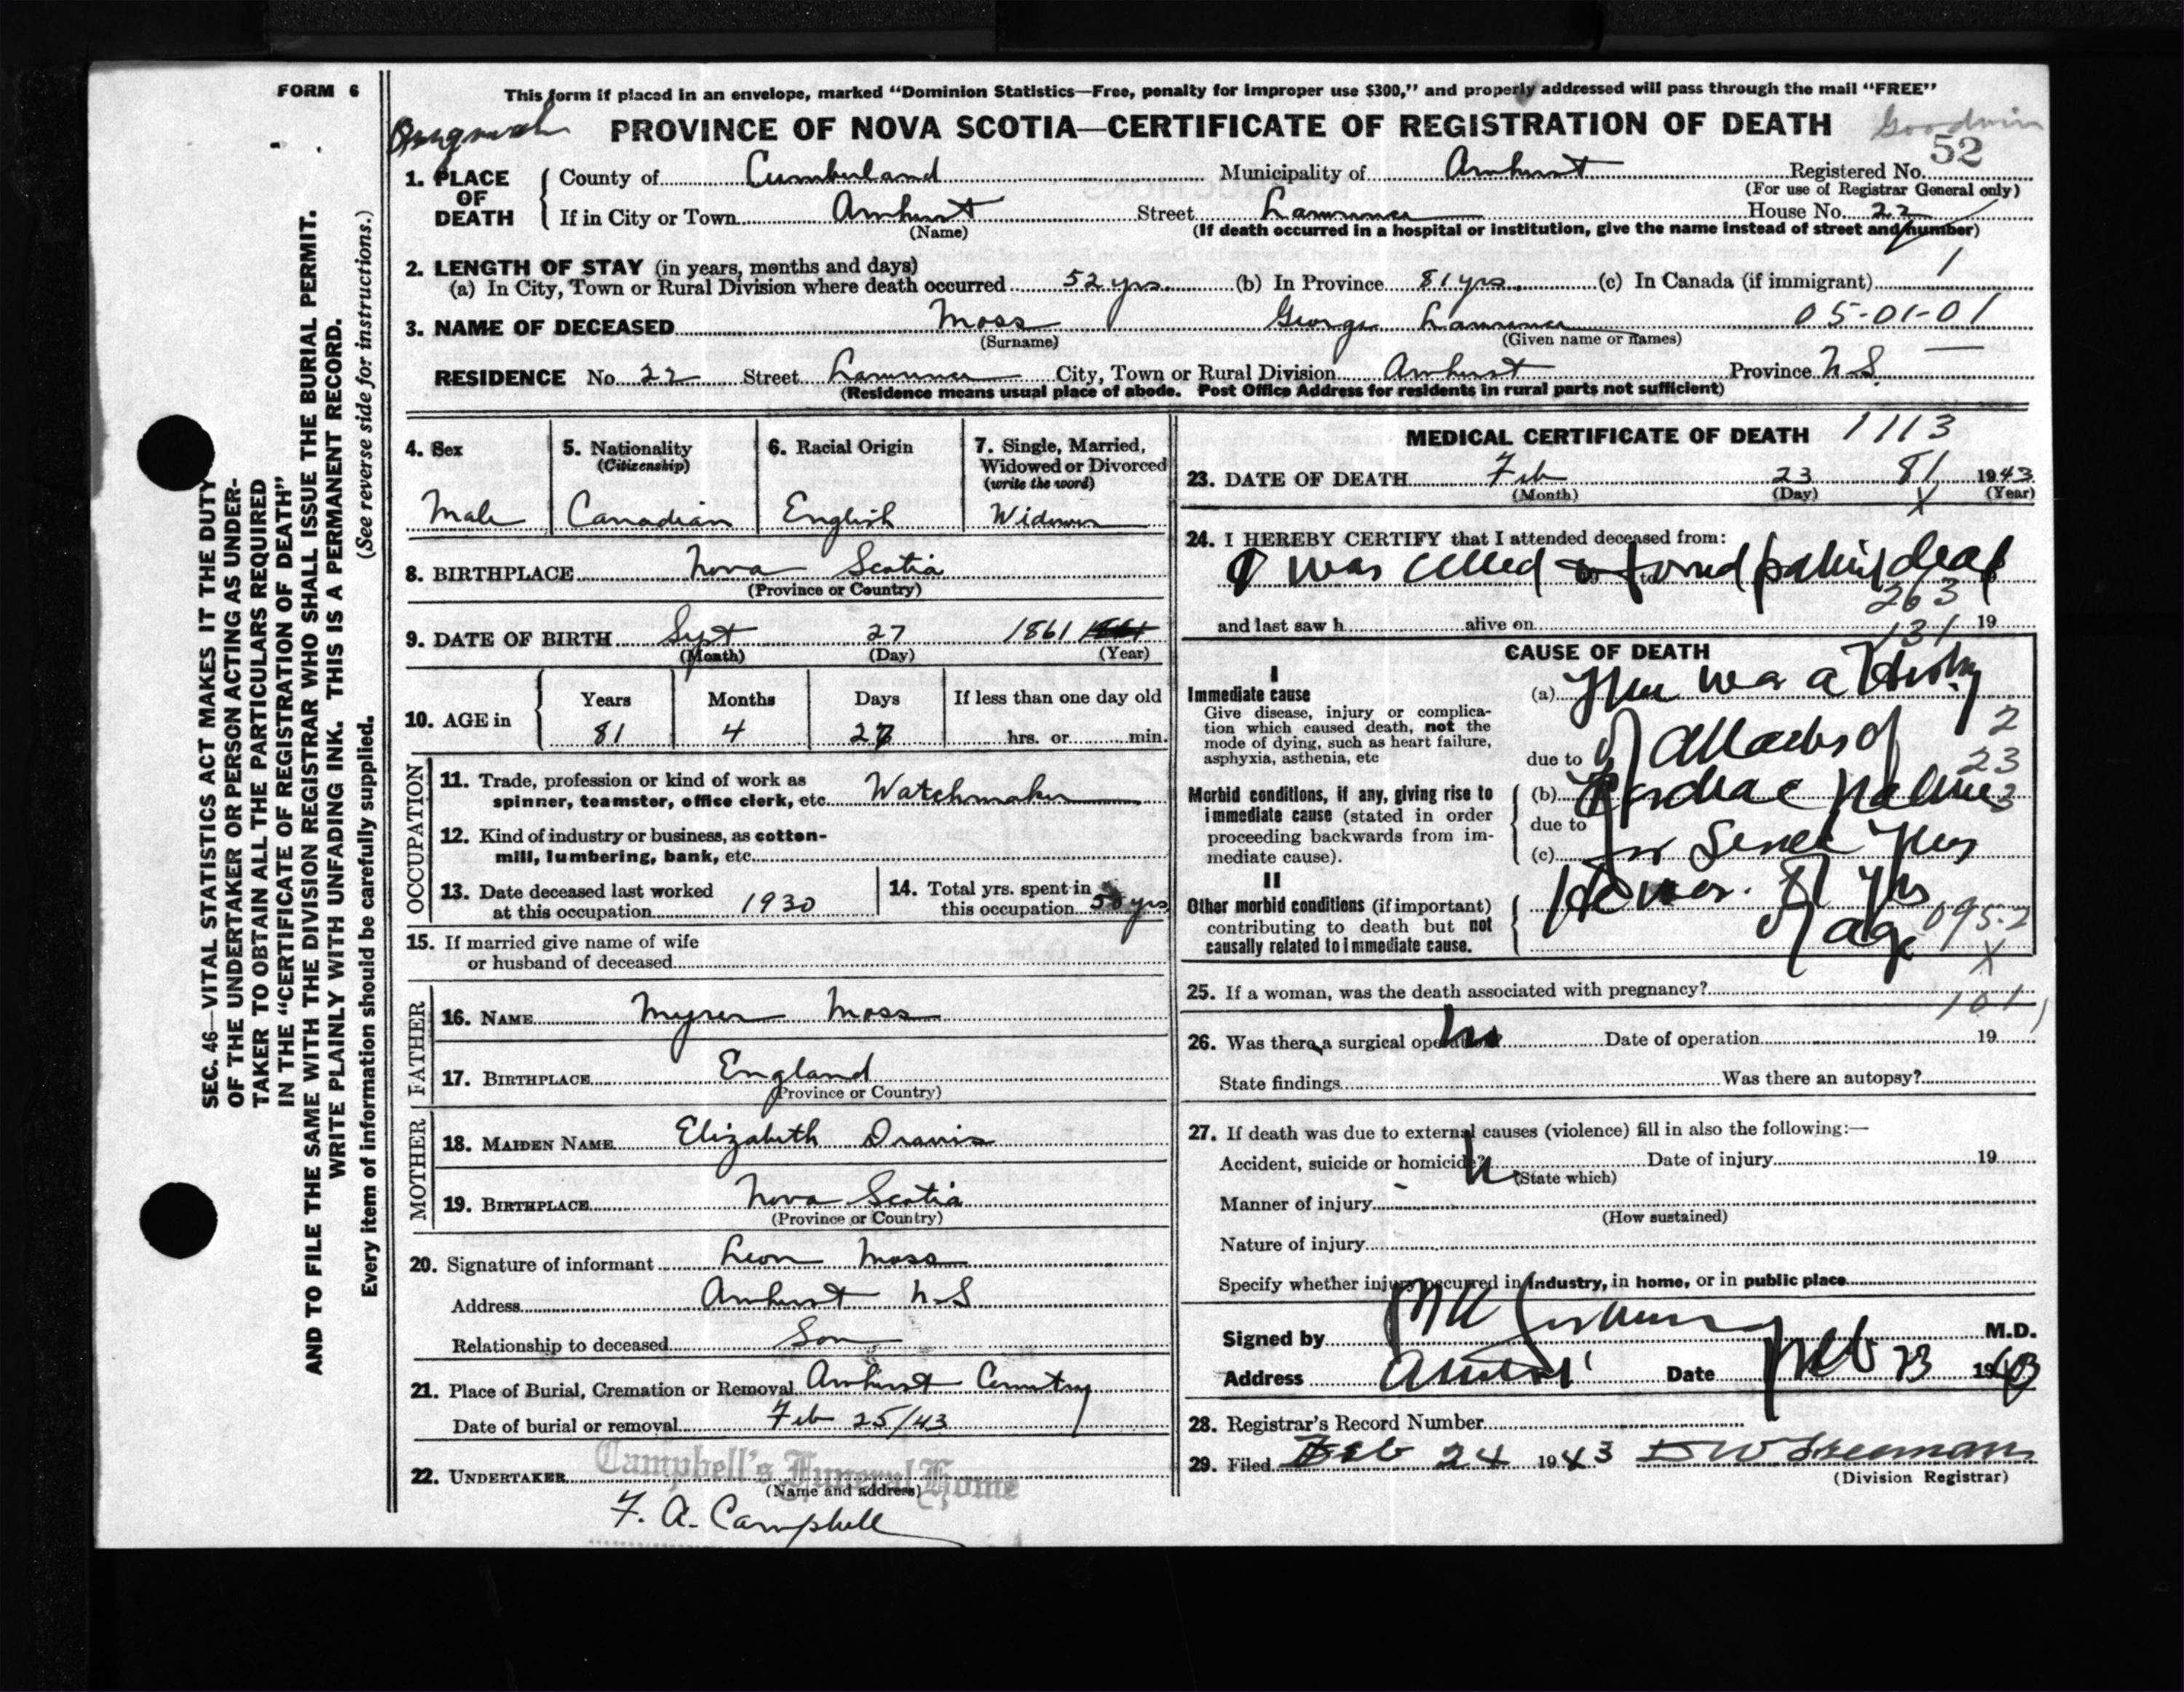 FORM 6
This form if placed in an envelope, marked "Dominion Statistics—Free, penalty for improper use $300," and properly addressed will pass through the mail "FREE"
PROVINCE OF NOVA SCOTIA—CERTIFICATE OF REGISTRATION OF DEATH Goodwin
52
1. PLACE OF DEATH County of Cumberland Municipality of Amherst Registered No.
(For use of Registrar General only)
If in City or Town Amherst Street Lawrence House No. 22
(Name) (If death occurred in a hospital or institution, give the name instead of street and number)
2. LENGTH OF STAY (in years, months and days) 1
(a) In City, Town or Rural Division where death occurred 52 yrs. (b) In Province 81 yrs. (c) In Canada (if immigrant)
3. NAME OF DECEASED Moss George Lawrence 05-01-01
(Surname) (Given name or names)
RESIDENCE No. 22 Street Lawrence City, Town or Rural Division Amherst Province N.S.
(Residence means usual place of abode. Post Office Address for residents in rural parts not sufficient)
4. Sex 5. Nationality (Citizenship) 6. Racial Origin 7. Single, Married, Widowed or Divorced (write the word)
Male Canadian English Widower
8. BIRTHPLACE Nova Scotia
(Province or Country)
9. DATE OF BIRTH Sept 27 1861
(Month) (Day) (Year)
10. AGE in Years Months Days If less than one day old
81 4 27 hrs. or min.
OCCUPATION
11. Trade, profession or kind of work as
spinner, teamster, office clerk, etc. Watchmaker
12. Kind of industry or business, as cotton-
mill, lumbering, bank, etc.
13. Date deceased last worked
at this occupation 1930
14. Total yrs. spent in
this occupation 50 yrs
15. If married give name of wife
or husband of deceased
FATHER
16. NAME Myrer Moss
17. BIRTHPLACE England
(Province or Country)
MOTHER
18. MAIDEN NAME Elizabeth
19. BIRTHPLACE Nova Scotia
(Province or Country)
20. Signature of informant Leon Moss
Address Amherst N.S
Relationship to deceased Son
21. Place of Burial, Cremation or Removal Amherst Cemetry
Date of burial or removal Feb 25/43
22. UNDERTAKER Campbell's Funeral Home
(Name and address)
F. A. Campbell
MEDICAL CERTIFICATE OF DEATH 1113
23. DATE OF DEATH Feb 23 81 1943
(Month) (Day) X (Year)
24. I HEREBY CERTIFY that I attended deceased from:
I was called & found patient dead
263
and last saw h alive on 131 19
CAUSE OF DEATH
I
Immediate cause
Give disease, injury or complica-
tion which caused death, not the
mode of dying, such as heart failure,
asphyxia, asthenia, etc
(a) There was a History
due to of attacks of 2
23
Morbid conditions, if any, giving rise to
immediate cause (stated in order
proceeding backwards from im-
mediate cause).
(b) Cardiac Failure 3
due to
(c) for Several years
II
Other morbid conditions (if important)
contributing to death but not
causally related to immediate cause.
He was 81 yrs
of age 095-2
X
25. If a woman, was the death associated with pregnancy?
101
26. Was there a surgical operation? No Date of operation 19
State findings Was there an autopsy?
27. If death was due to external causes (violence) fill in also the following:—
Accident, suicide or homicide? Date of injury 19
(State which)
Manner of injury
(How sustained)
Nature of injury
Specify whether injury occurred in industry, in home, or in public place
Signed by M.D.
Address Amherst Date Feb 23 1943
28. Registrar's Record Number
29. Filed Feb 24 1943
(Division Registrar)
SEC. 46—VITAL STATISTICS ACT MAKES IT THE DUTY
OF THE UNDERTAKER OR PERSON ACTING AS UNDER-
TAKER TO OBTAIN ALL THE PARTICULARS REQUIRED
IN THE "CERTIFICATE OF REGISTRATION OF DEATH"
AND TO FILE THE SAME WITH THE DIVISION REGISTRAR WHO SHALL ISSUE THE BURIAL PERMIT.
WRITE PLAINLY WITH UNFADING INK. THIS IS A PERMANENT RECORD.
Every item of information should be carefully supplied. (See reverse side for instructions.)